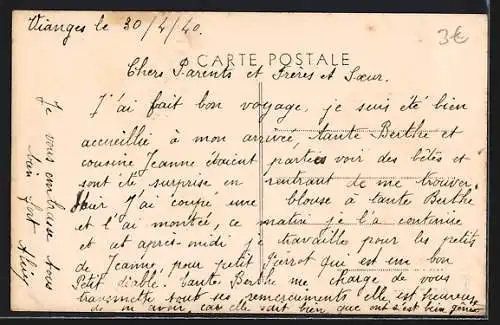 Vianges le 30/4/40.
3€
CARTE POSTALE
Chers Parents et Frères et Sœur.
J'ai fait bon voyage, je suis été bien
accueillie à mon arrivée, tante Berthe et
cousine Jeanne étaient parties voir des bêtes et
sont été surprise en rentrant de me trouver.
Hier J'ai coupé une blouse à tante Berthe
et l'ai montée, ce matin je l'a continue
et cet après-midi je travaille pour les petits
de Jeanne, pour petit Pierrot qui est un bon
Petit diable. Tante Berthe me charge de vous
transmettre tout ses remerciments elle est heureuse
de m'avoir, car elle voit bien que ont s'est bien
Je vous embrasse tous
bien fort